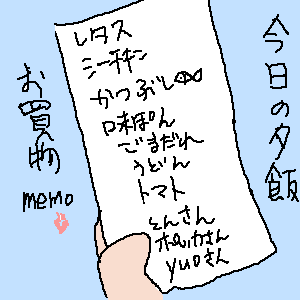 今日の夕飯
お買物
memo
レタス
シーチキン
かつぶし
味ぽん
ごまだれ
うどん
トマト
とんさん
ポッカさん
yuoさん